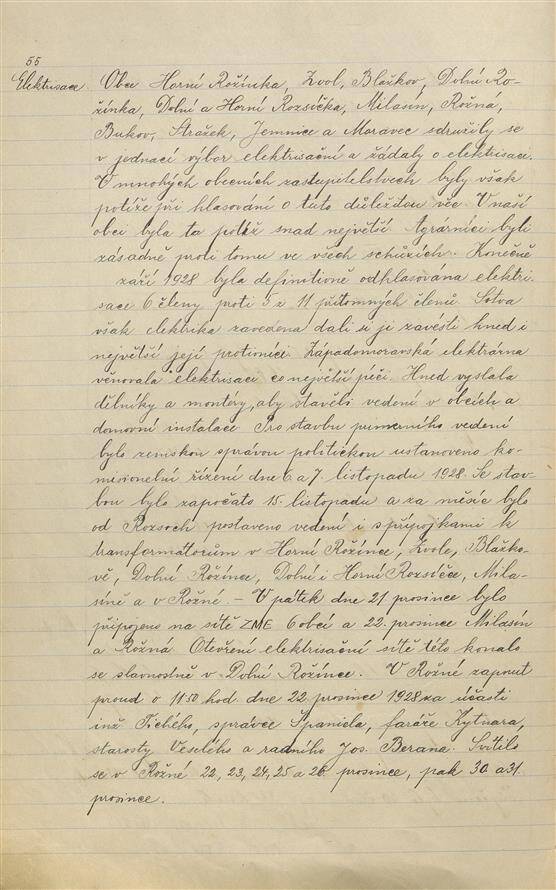 55
Elektrisace. Obce Horní Rožínka, Zvol, Blažkov, Dolní Ro-
žínka, Dolní a Horní Rozsíčka, Milasín, Rožná,
Bukov, Strážek, Jemnice a Moravec sdružily se
v jednací výbor elektrisační a žádaly o elektrisaci.
V mnohých obecních zastupitelstvech byly však
potíže při hlasování o tuto důležitou věc. V naší
obci byla ta potíž snad největší. Agrárníci byli
zásadně proti tomu ve všech schůzích. Konečně
září 1928 byla definitivně odhlasována elektri-
sace 6 členy proti 5 z 11 přítomných členů. Sotva
však elektrika zavedena dali si ji zavésti hned i
největší její protivníci. Západomoravská elektrárna
věnovala elektrisaci co největší péči. Hned vyslala
dělníky a montéry, aby stavěli vedení v obcích a
domovní instalace. Pro stavbu primerního vedení
bylo zemskou správou politickou ustanoveno ko-
misionelní řízení dne 6 a 7. listopadu 1928. Se stav-
bou bylo započato 15. listopadu a za měsíc bylo
od Rozsoch postaveno vedení i s přípojkami k
transformátorům v Horní Rožínce, Zvole, Blažko-
vě, Dolní Rožínce, Dolní i Horní Rozsíčce, Mila-
síně a v Rožné. – V pátek dne 21. prosince bylo
připojeno na sítě ZME 6 obcí a 22. prosince Milasín
a Rožná. Otevření elektrisační sítě této konalo
se slavnostně v Dolní Rožínce. V Rožné zapnut
proud o 11.50 hod. dne 22. prosince 1928 za účasti
inž. Tichého, správce Španiela, faráře Kytnara,
starosty Veselého a radního Jos. Berana. Svítilo
se v Rožné 22, 23, 24, 25 a 26. prosince, pak 30. a 31.
prosince.